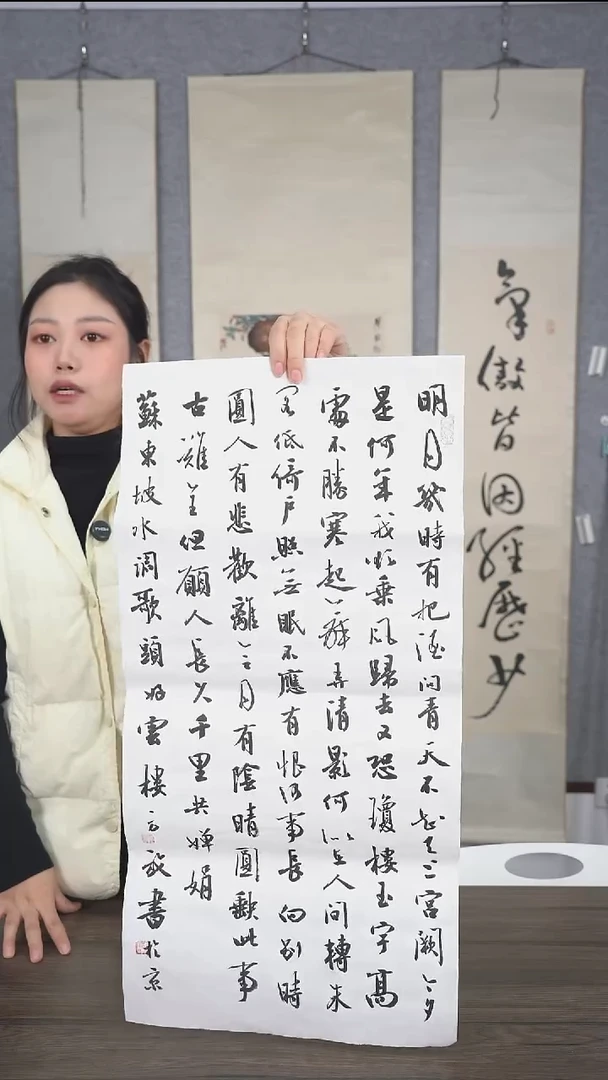 明月幾時有把酒問青天不知天上宮闕今夕
是何年我欲乘風歸去又恐瓊樓玉宇高
處不勝寒起舞弄清影何似在人間轉朱
閣低綺戶照無眠不應有恨何事長向別時
圓人有悲歡離合月有陰晴圓缺此事
古難全但願人長久千里共嬋娟
蘇東坡水調歌頭雲樓書於京
氣傲皆因經歷少